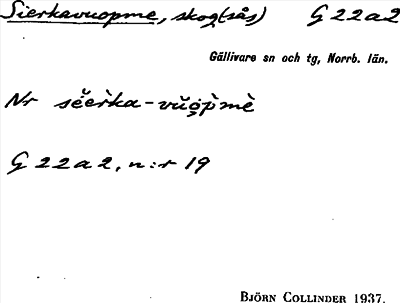 Sierkavuopme, skog(sås) G 22 a 2
Gällivare sn och tg, Norrb. län.
Nr sĕerka-vŭọpmè
G 22 a 2, n:r 19
BJÖRN COLLINDER 1937.